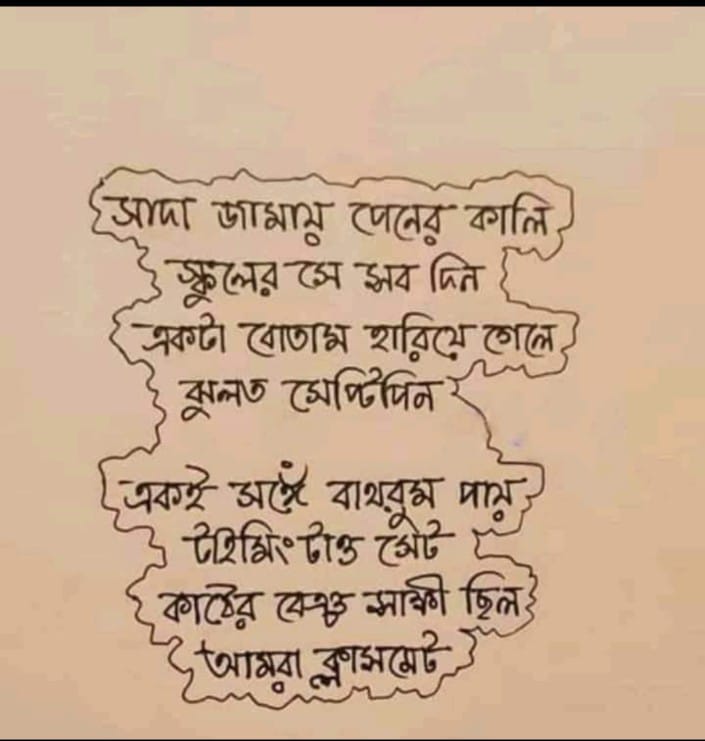 সাদা জামায় পেনের কালি
স্কুলের সে সব দিন
একটা বোতাম হারিয়ে গেলে
ঝুলত সেপ্টিপিন
একই সঙ্গে বাথরুম পায়
টাইমিং টাও সেট
কাঠের বেঞ্চ সাক্ষী ছিল
আমরা ক্লাসমেট